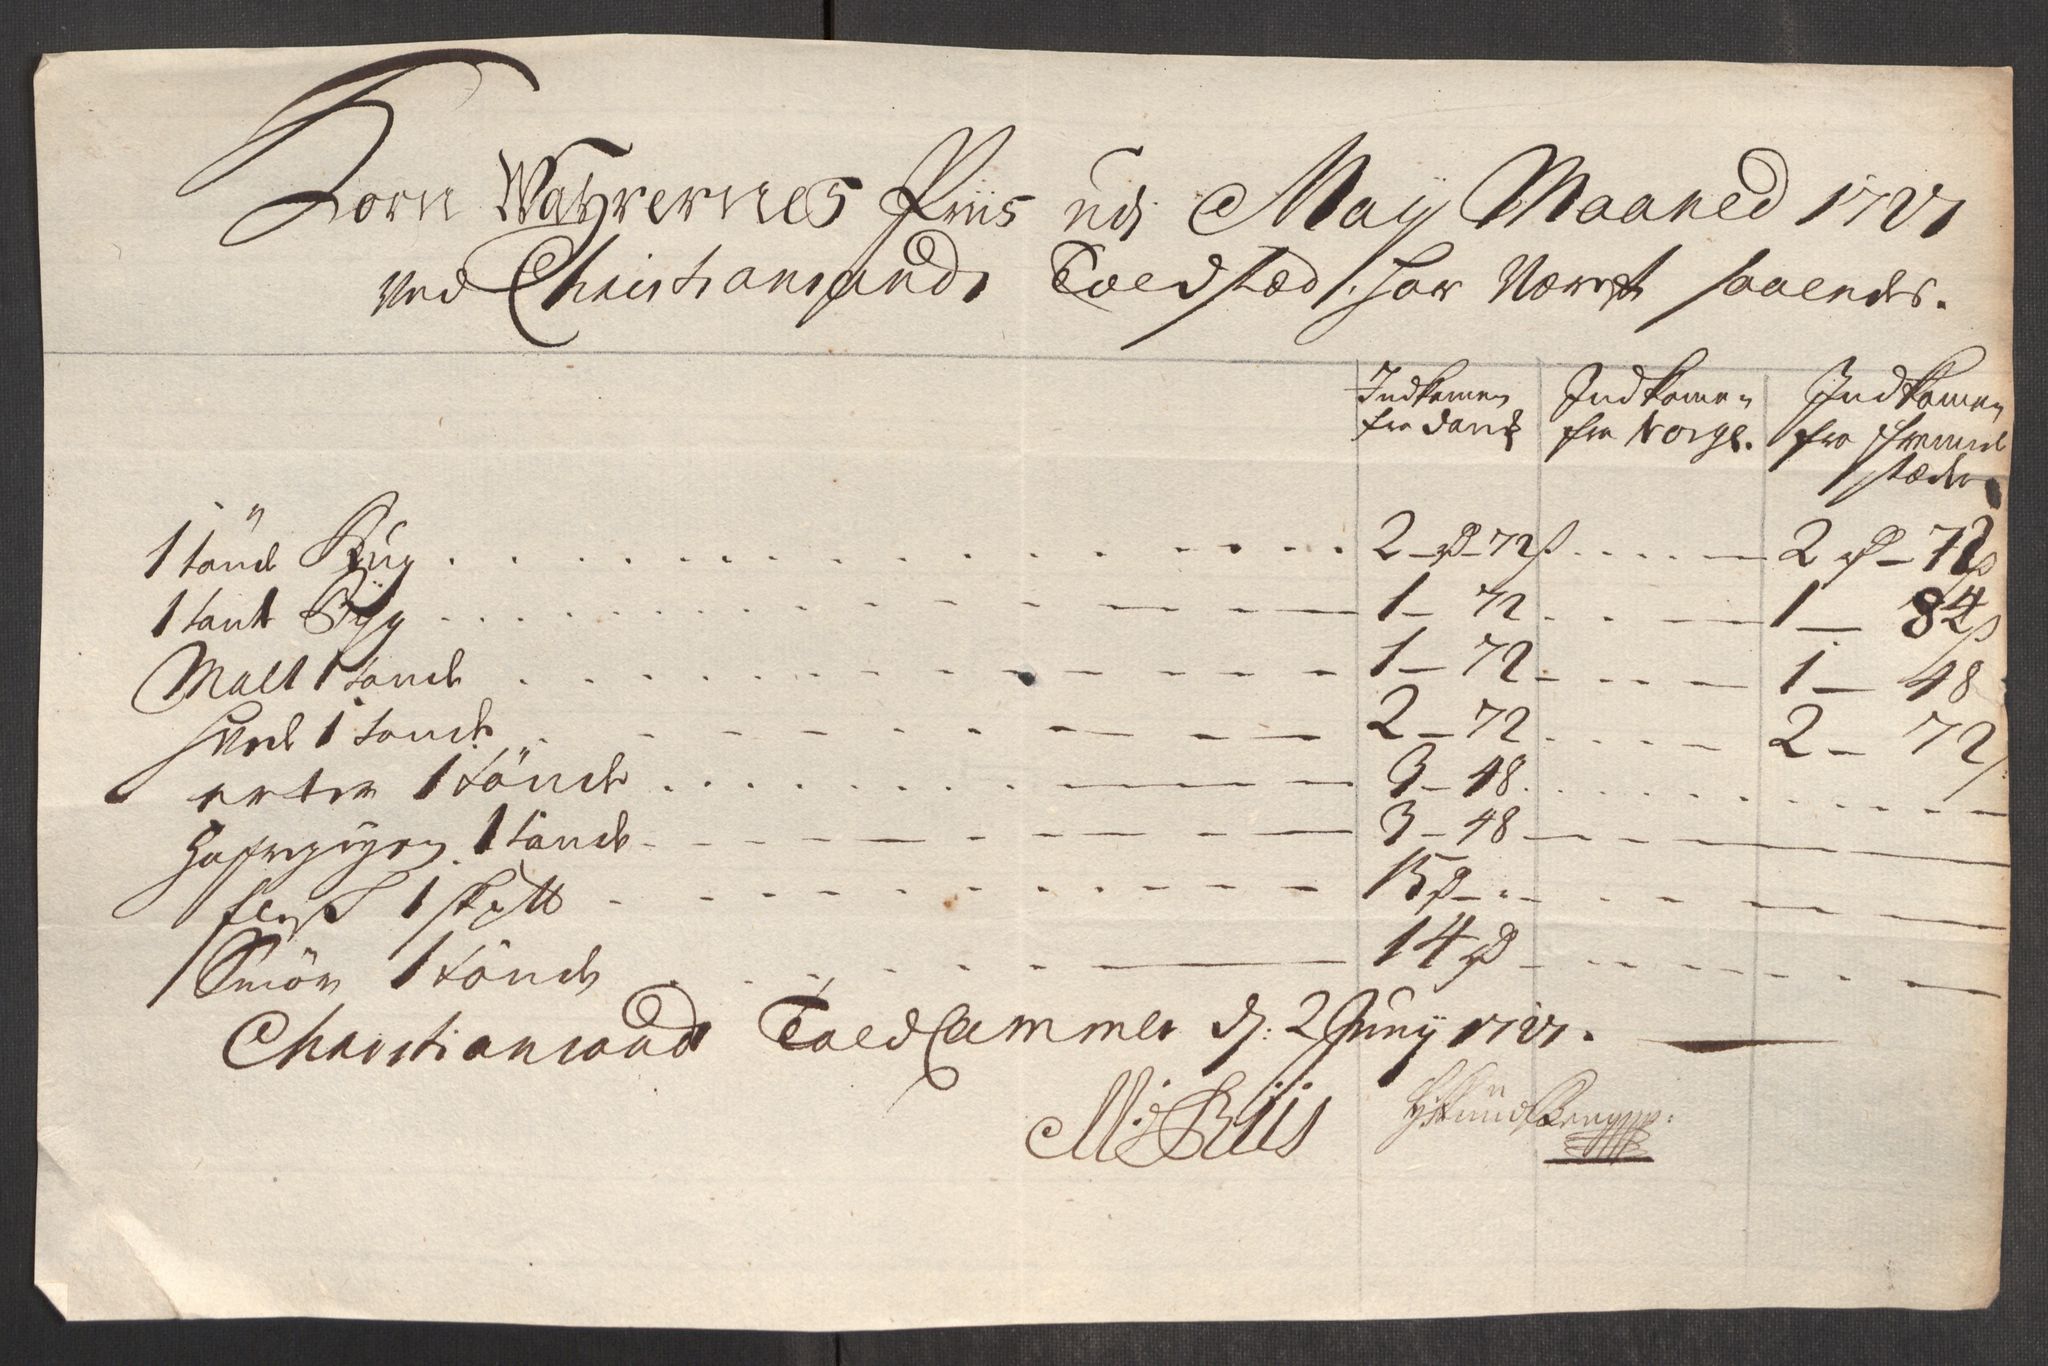 Korn Wahrernes Priis udj May Maaned 1721
ved Christiansands Toldstæd, har Været saaledes.
Indkomen fra Dank
Indkomen fra Norge.
Indkomen fra fremde stæder
1 tönde Rug . . . 2 rd – 72 s . . . 2 rd – 72 s
1 tönde Byg . . . 1 – 72 . . . 1 – 84 s
Malt 1 tönde . . . 1 – 72 . . . 1 – 48
Hvede 1 tönde . . . 2 – 72 . . . 2 – 72 s
erter 1 tönde . . . 3 – 48
Hafregryn 1 tönde . . . 3 – 48
flesk 1 sk℔ . . . 15 rd
Smör 1 tönde . . . 14 rd
Christiansands Told Cammer d: 2 Juny 1721.
M: Riis